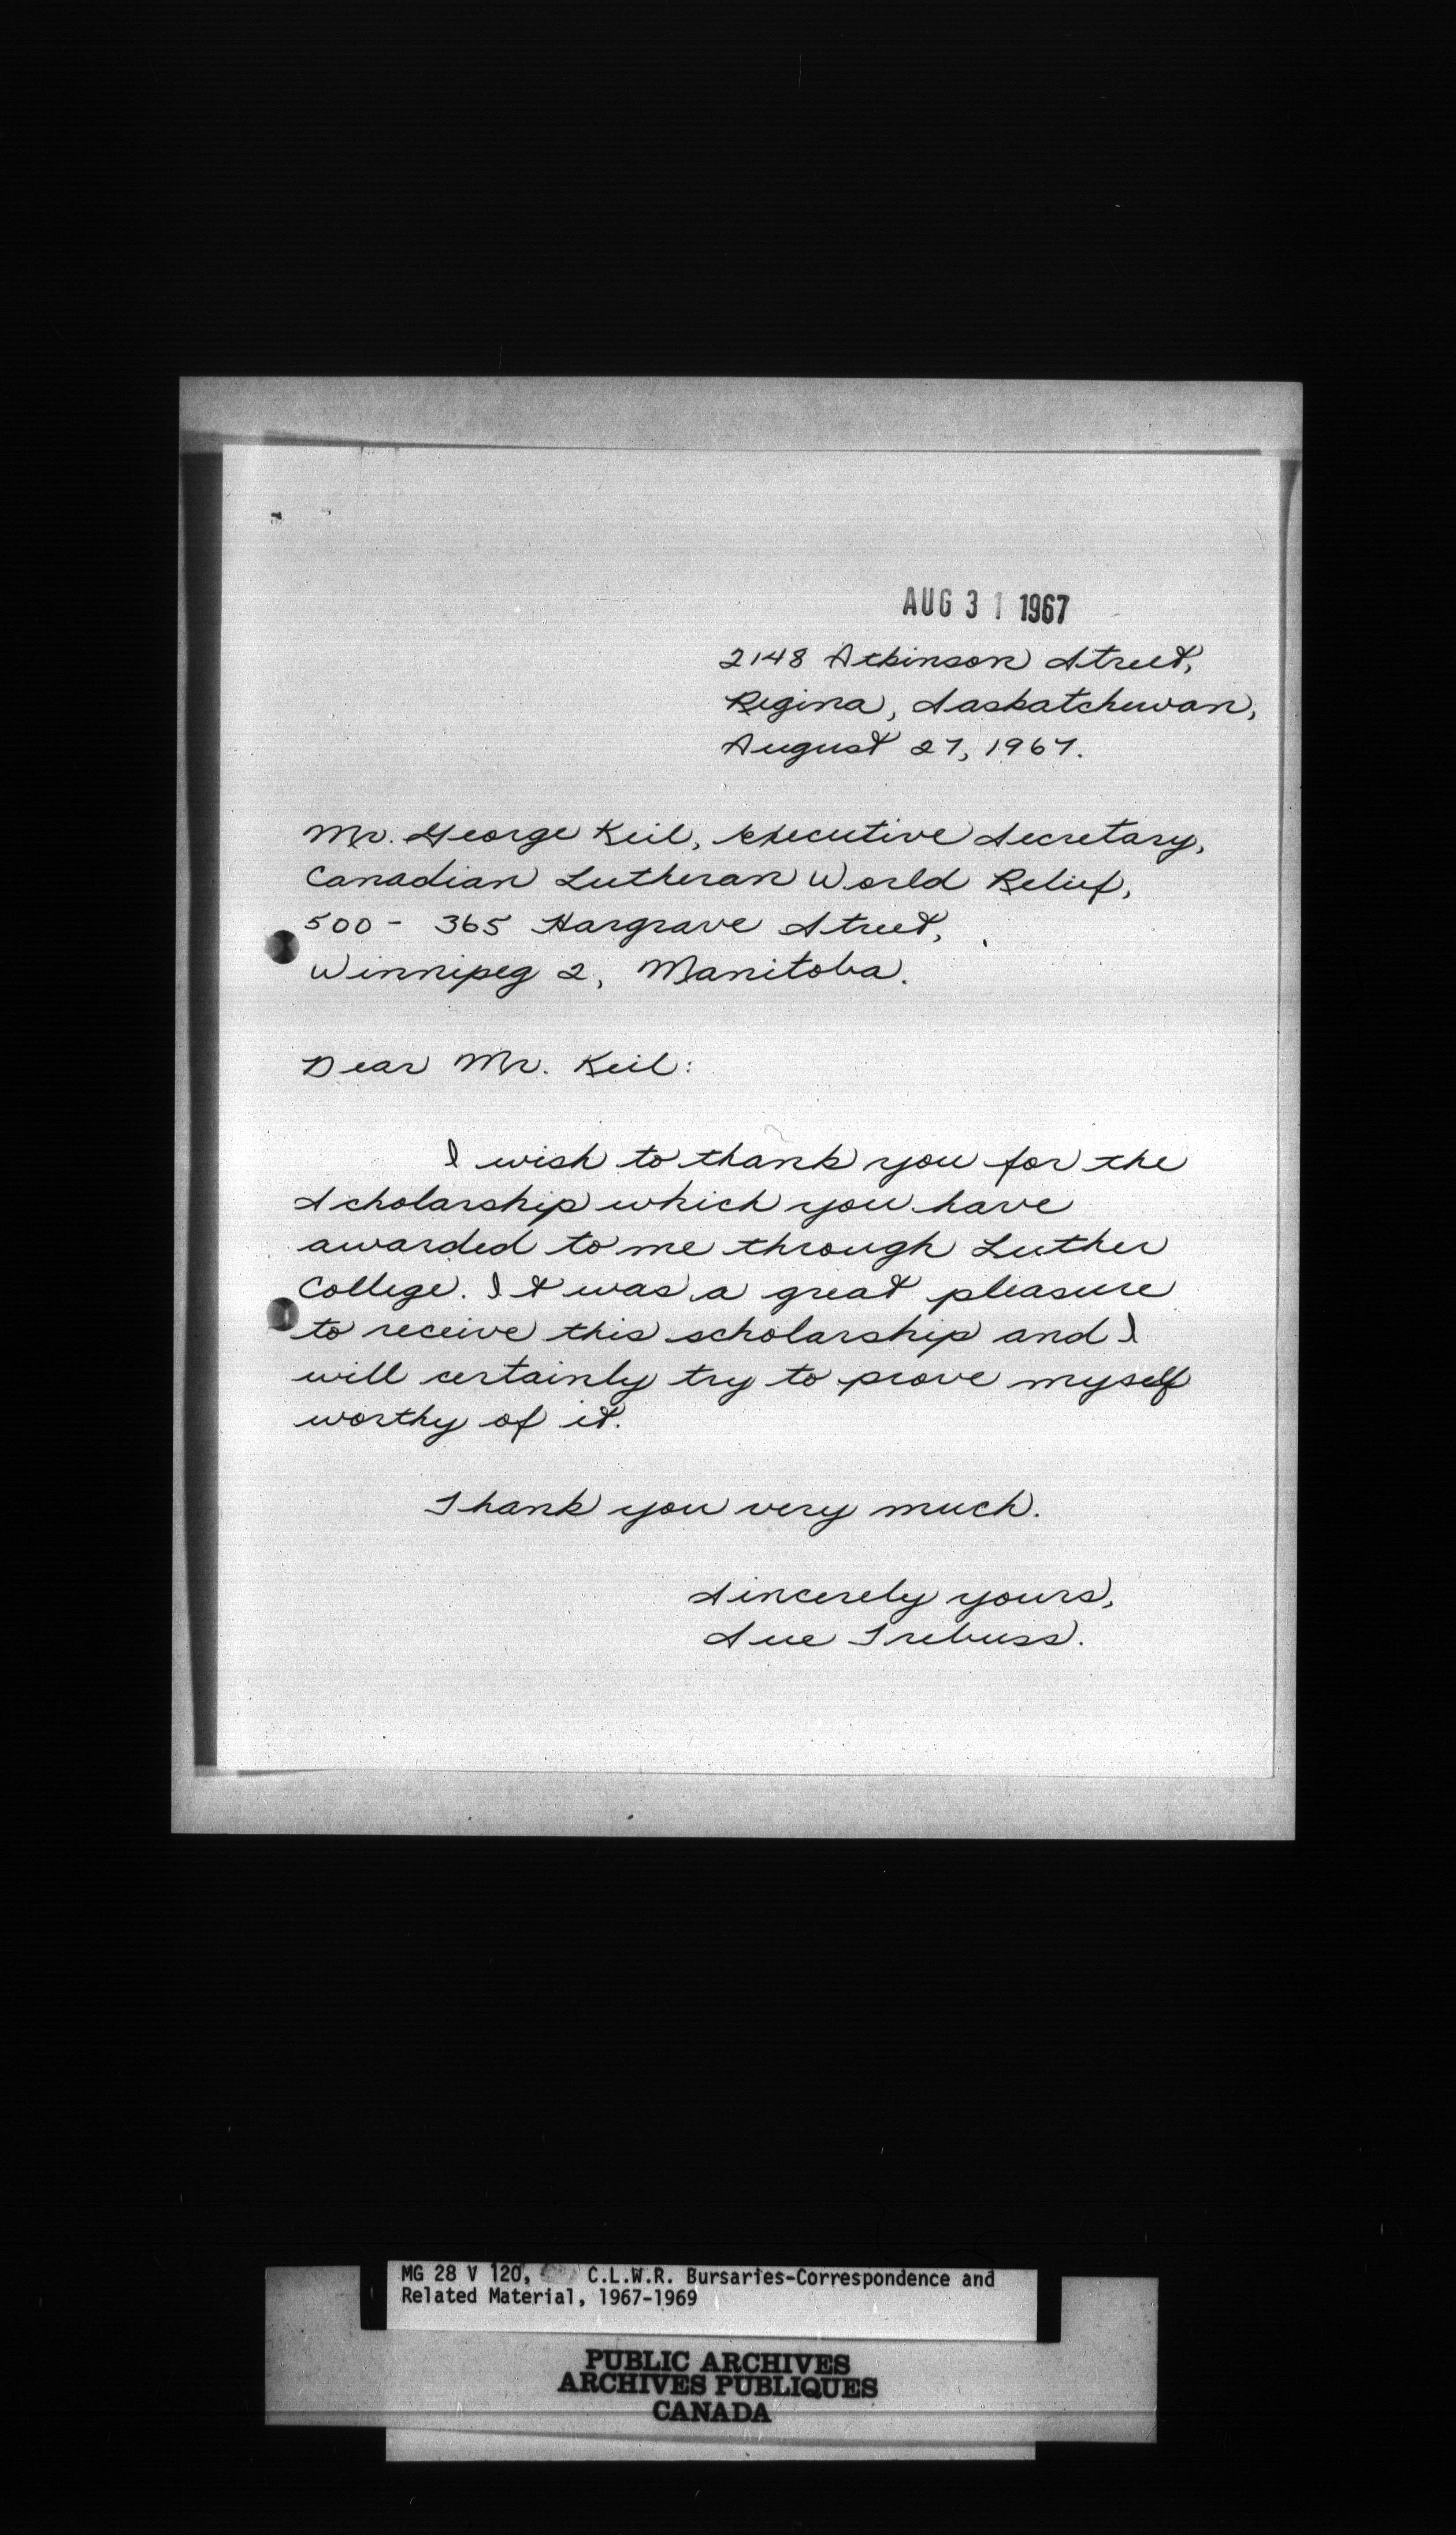 AUG 31 1967
2148 Atkinson Street,
Regina, Saskatchewan,
August 27, 1967.
Mr. George Keil, Executive Secretary,
Canadian Lutheran World Relief,
500 - 365 Hargrave Street,
Winnipeg 2, Manitoba.
Dear Mr. Keil:
I wish to thank you for the
Scholarship which you have
awarded to me through Luther
College. It was a great pleasure
to receive this scholarship and I
will certainly try to prove myself
worthy of it.
Thank you very much.
Sincerely yours,
Sue Trebuss.
MG 28 V 120, C.L.W.R. Bursaries-Correspondence and
Related Material, 1967-1969
PUBLIC ARCHIVES
ARCHIVES PUBLIQUES
CANADA